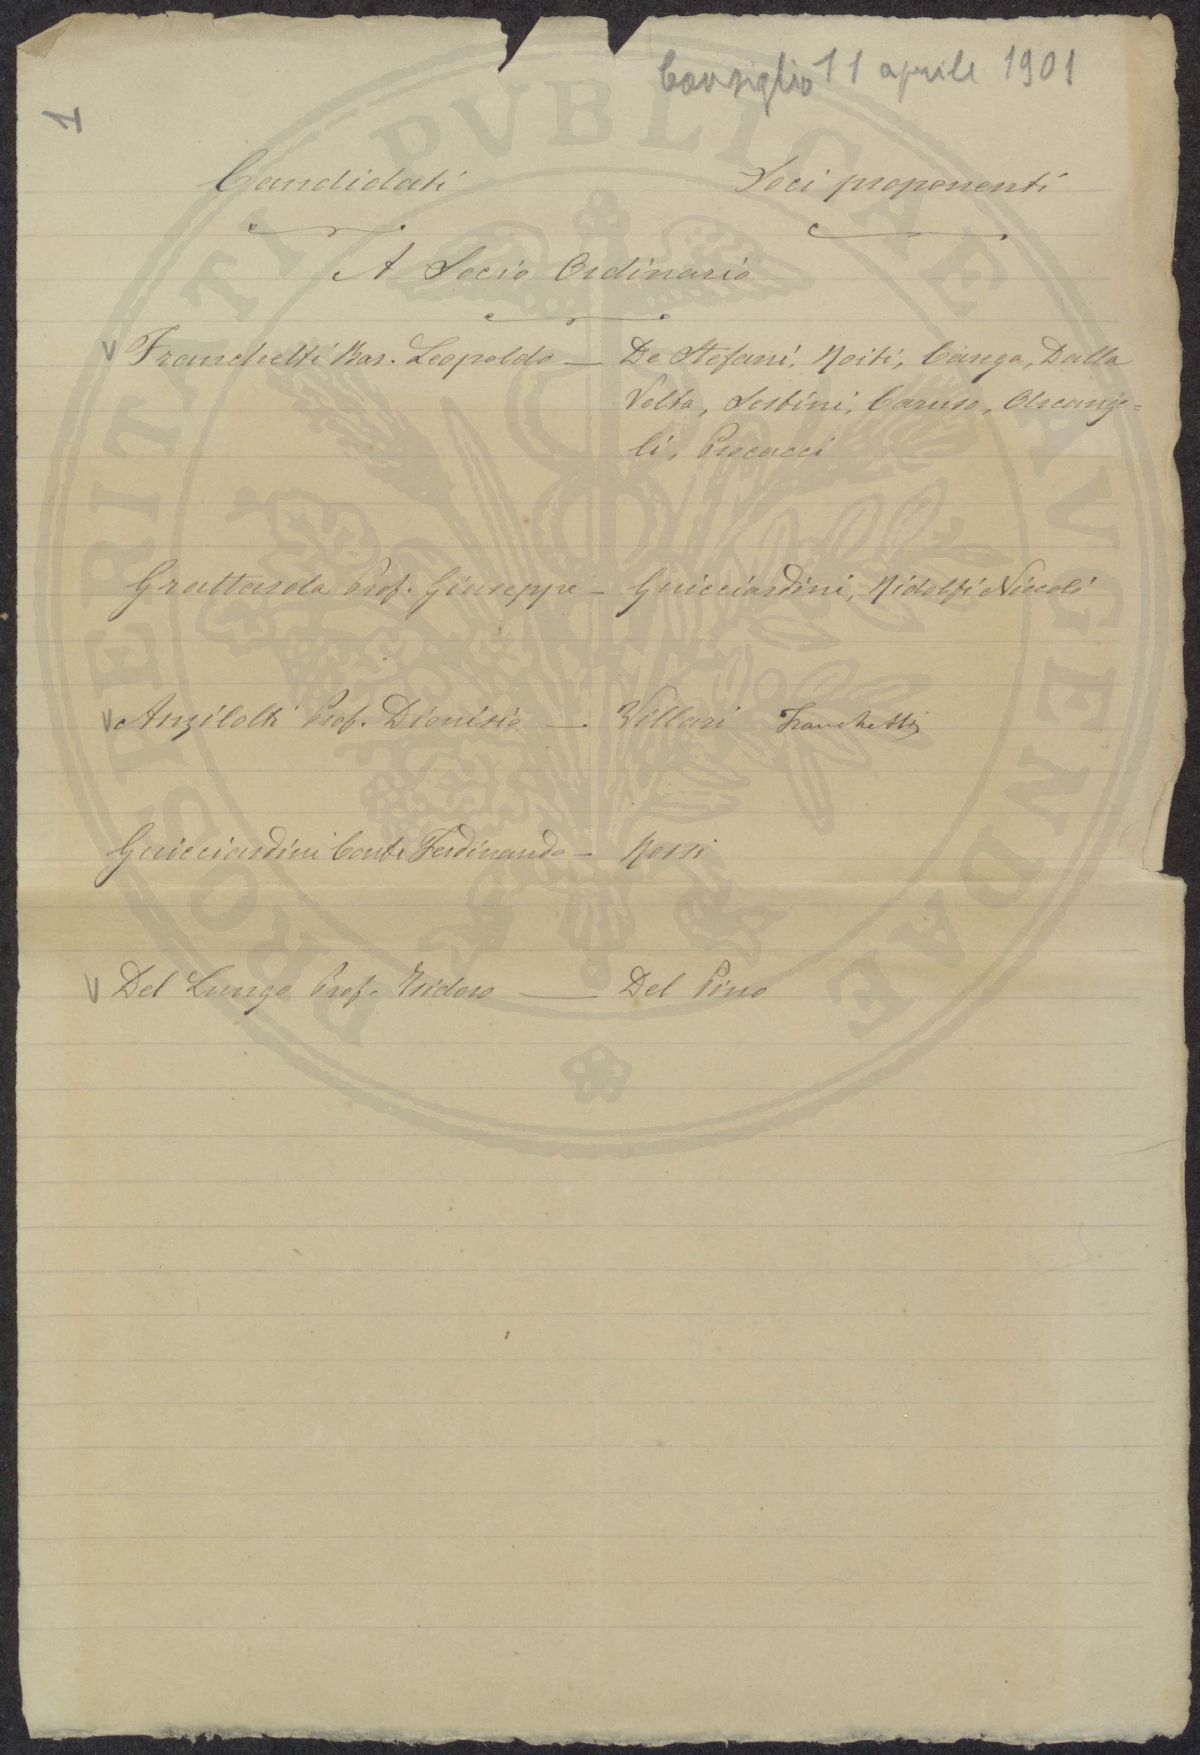 Consiglio 11 aprile 1901
1
Candidati Soci proponenti
A Socio Ordinario
V Franchetti Bar. Leopoldo — De Stefani, Roiti, Canga, Dalla
Volta, Sestini, Caruso, Arcange=
li, Procacci
Grattarola Prof. Giuseppe — Guicciardini, Ridolfi Niccolò
V Anzilotti Prof. Dionisio — Villari Franchetti
Guicciardini Conte Ferdinando — Rossi
V Del Lungo Prof. Isidoro — Del Pino
PROSPERITATI PVBLICAE AVGENDAE